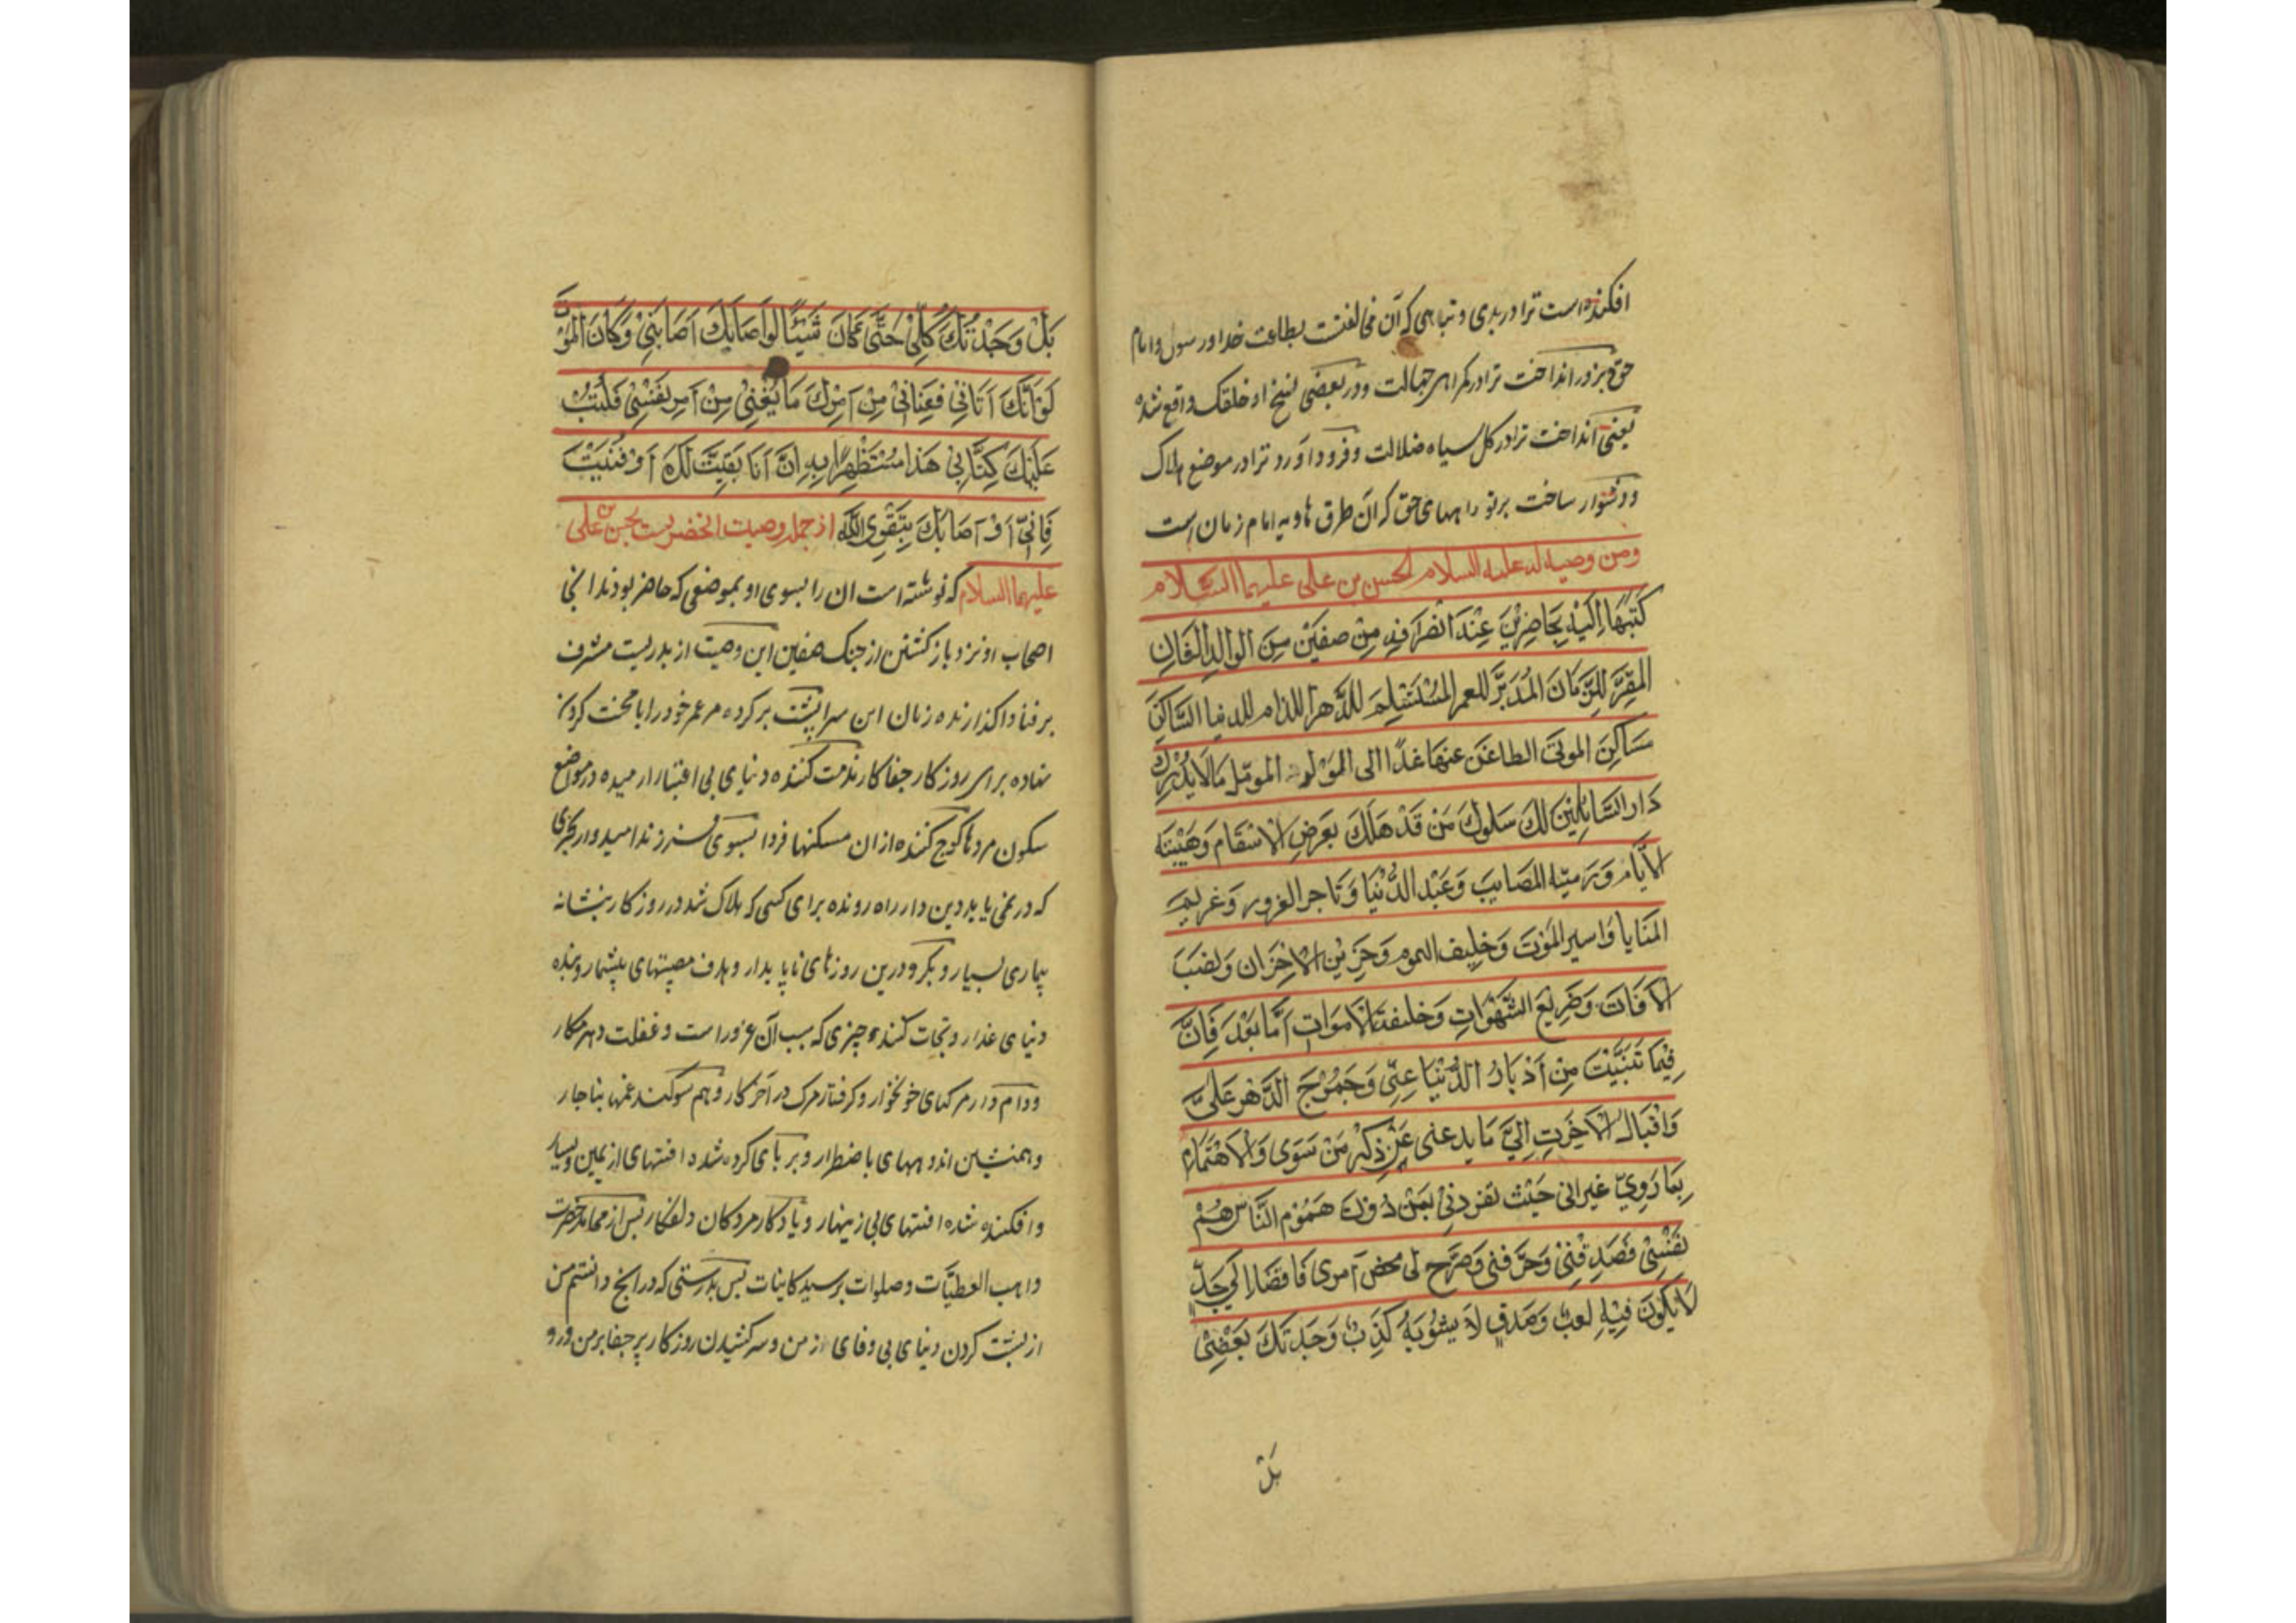 افکنده است ترا در بدی و تباهی که آن مخالفتست بطاعت خدا و رسول و امام
حق و بزور انداخت ترا در گمراهی جهالت و در بعضی نسخ اد خلقک واقع شده
یعنی انداخت ترا در کل سیاه ضلالت و فرود آورد ترا در موضع هلاک
و دشوار ساخت بر تو راههای حق که آن طرق هادیه امام زمان است
ومن وصیه له علیه السلام لحسن بن علی علیهما السلام
كَتَبَهَا اِلَيْهِ بِحَاضِرِيْنَ عِنْدَ انْصَرَافِهِ مِنْ صفيّن مِنَ الوالدِ الفَانِ
المُقِرَّ لِلزَّمَانَ المُدَبَّرَ للعمر المُسْتَسْلِمَ لِلدَّهرِ الذام للدنيا السَّاكِنَ
مَسَاكِنَ الموتَى الظاعَنَ عنهَا غَدًا الى المَوْلُود المومّل مَا لَا يُدْرِكُ
دَار السَّابِلِينَ لكَ سَلُوكَ مَنْ قَدْ هَلَكَ بعَرَضِ الْاَسْقَامِ وَهَيْنَةِ
الْاَيَّام وَرَميّة المصَايبَ وَعَبْد الدُّنيَا وَتَاجر الغرور وَغريم
المَنَايا وَاسير المَوْتَ وَحَليف الهموم وَحَزِيْنِ الْاَحْزَان وَنَصْبَ
الْآفَات وَضَرِيعَ الشَّهَوَاتِ وَخليفة الْاَموَات اَمَّا بَعْدَ فَاِنَّ
فِيْمَا تَبَيَّنْتَ مِنْ اَدْبَارِ الدُّنْيَا عَنِّي وَجَمُوْحِ الدَّهْرَ عَلَيَّ
وَاقْبَالِ الْاَخِرَتِ اِلَيَّ مَا يدعنى عَنْ ذِكْرِ مَنْ سَوَى وَالْاَهْتِمَام
بِمَا رَوِيّ غيرانى حَيْث تفردنِيْ بَعَنْ دُونَ هَمُوْم النَّاسِ هُمْ
نَفْسِيْ فَصَدِفْنِيْ وَحَرَّفنى وَصَرَّح لى محضَ اَمرى فَافضَا اِلَى جَدِّ
لَا يَكُونَ فِيْهِ لعبٌ وَصَدقٍ لَا يشُوْبَهُ كَذِبٌ وَجَدْتَكَ بَعْضِيْ
بَلْ
بَلْ وَجَدْتُكَ كُلّيْ حَتَّى كَانَ شَيْئًا لَوْ اَصَابَكَ اَصَابَنِيْ وَكَانَ المَوْتَ
لَوْ اَتَاكَ اَتَانِيْ فَعِنَانِيْ مِنْ اَمْرِكَ مَا يُغْنِيْ مِنْ اَمرِ نَفْسِيْ فَكَتَبْتُ
عَلَيْكَ كِتَابِيْ هَذَا مُسْتَظْهِرًا بِهِ اِنَّ اَنَا بَقِيَتُ لَكَ اَوْ فَنَيْتَ
فَاِنِّيْ اَوْ اَصَابَكَ بِتَقْوِى اللّٰه از جمله وصیت انحضرتست بحسن بن علی
علیهما السلام که نوشته است ان را بسوی او بموضعی که حاضر بودند انجا
اصحاب او نزد بازکشتن از جنک صفین این وصیت از پدریست مشرف
بر فنا واکذارنده زمان این سرا پشت بر کرده مر عمر خود را با محنت کردن
نهاده برای روزکار جفا کار مذمت کننده دنیای بی اعتبار ارمیده در مواضع
سکون مردها کوچ کننده از ان مسکنها فردا بسوی فرزند امیدوار بچیزی
که در نمی یابد دین دار راه رونده برای کسی که هلاک شد در روزکار بنشانه
بیماری بسیار و بکرو درین روزهای ناپایدار و هدف مصیبتهای بیشمار و بنده
دنیای غدار و تجات کننده چیزی که سبب آن غرور است و غفلت دهر مکار
ووام دار مرکهای خونخوار و کرفتار مرک در آخر کار و هم سوکند غمها بناچار
و همنشین اندوههای باضطرار و برپای کرده شده افتهای از یمین و یسار
و افکنده شده افتهای بی زینهار و یادکار مردکان دلفکار پس از محامد حضرت
واهب العطیّات و صلوات بر سید کاینات پس بدرستی که در انج دانستم من
از پشت کردن دنیای بی وفای از من و سرکشیدن روزکار پر جفا بر من و رو